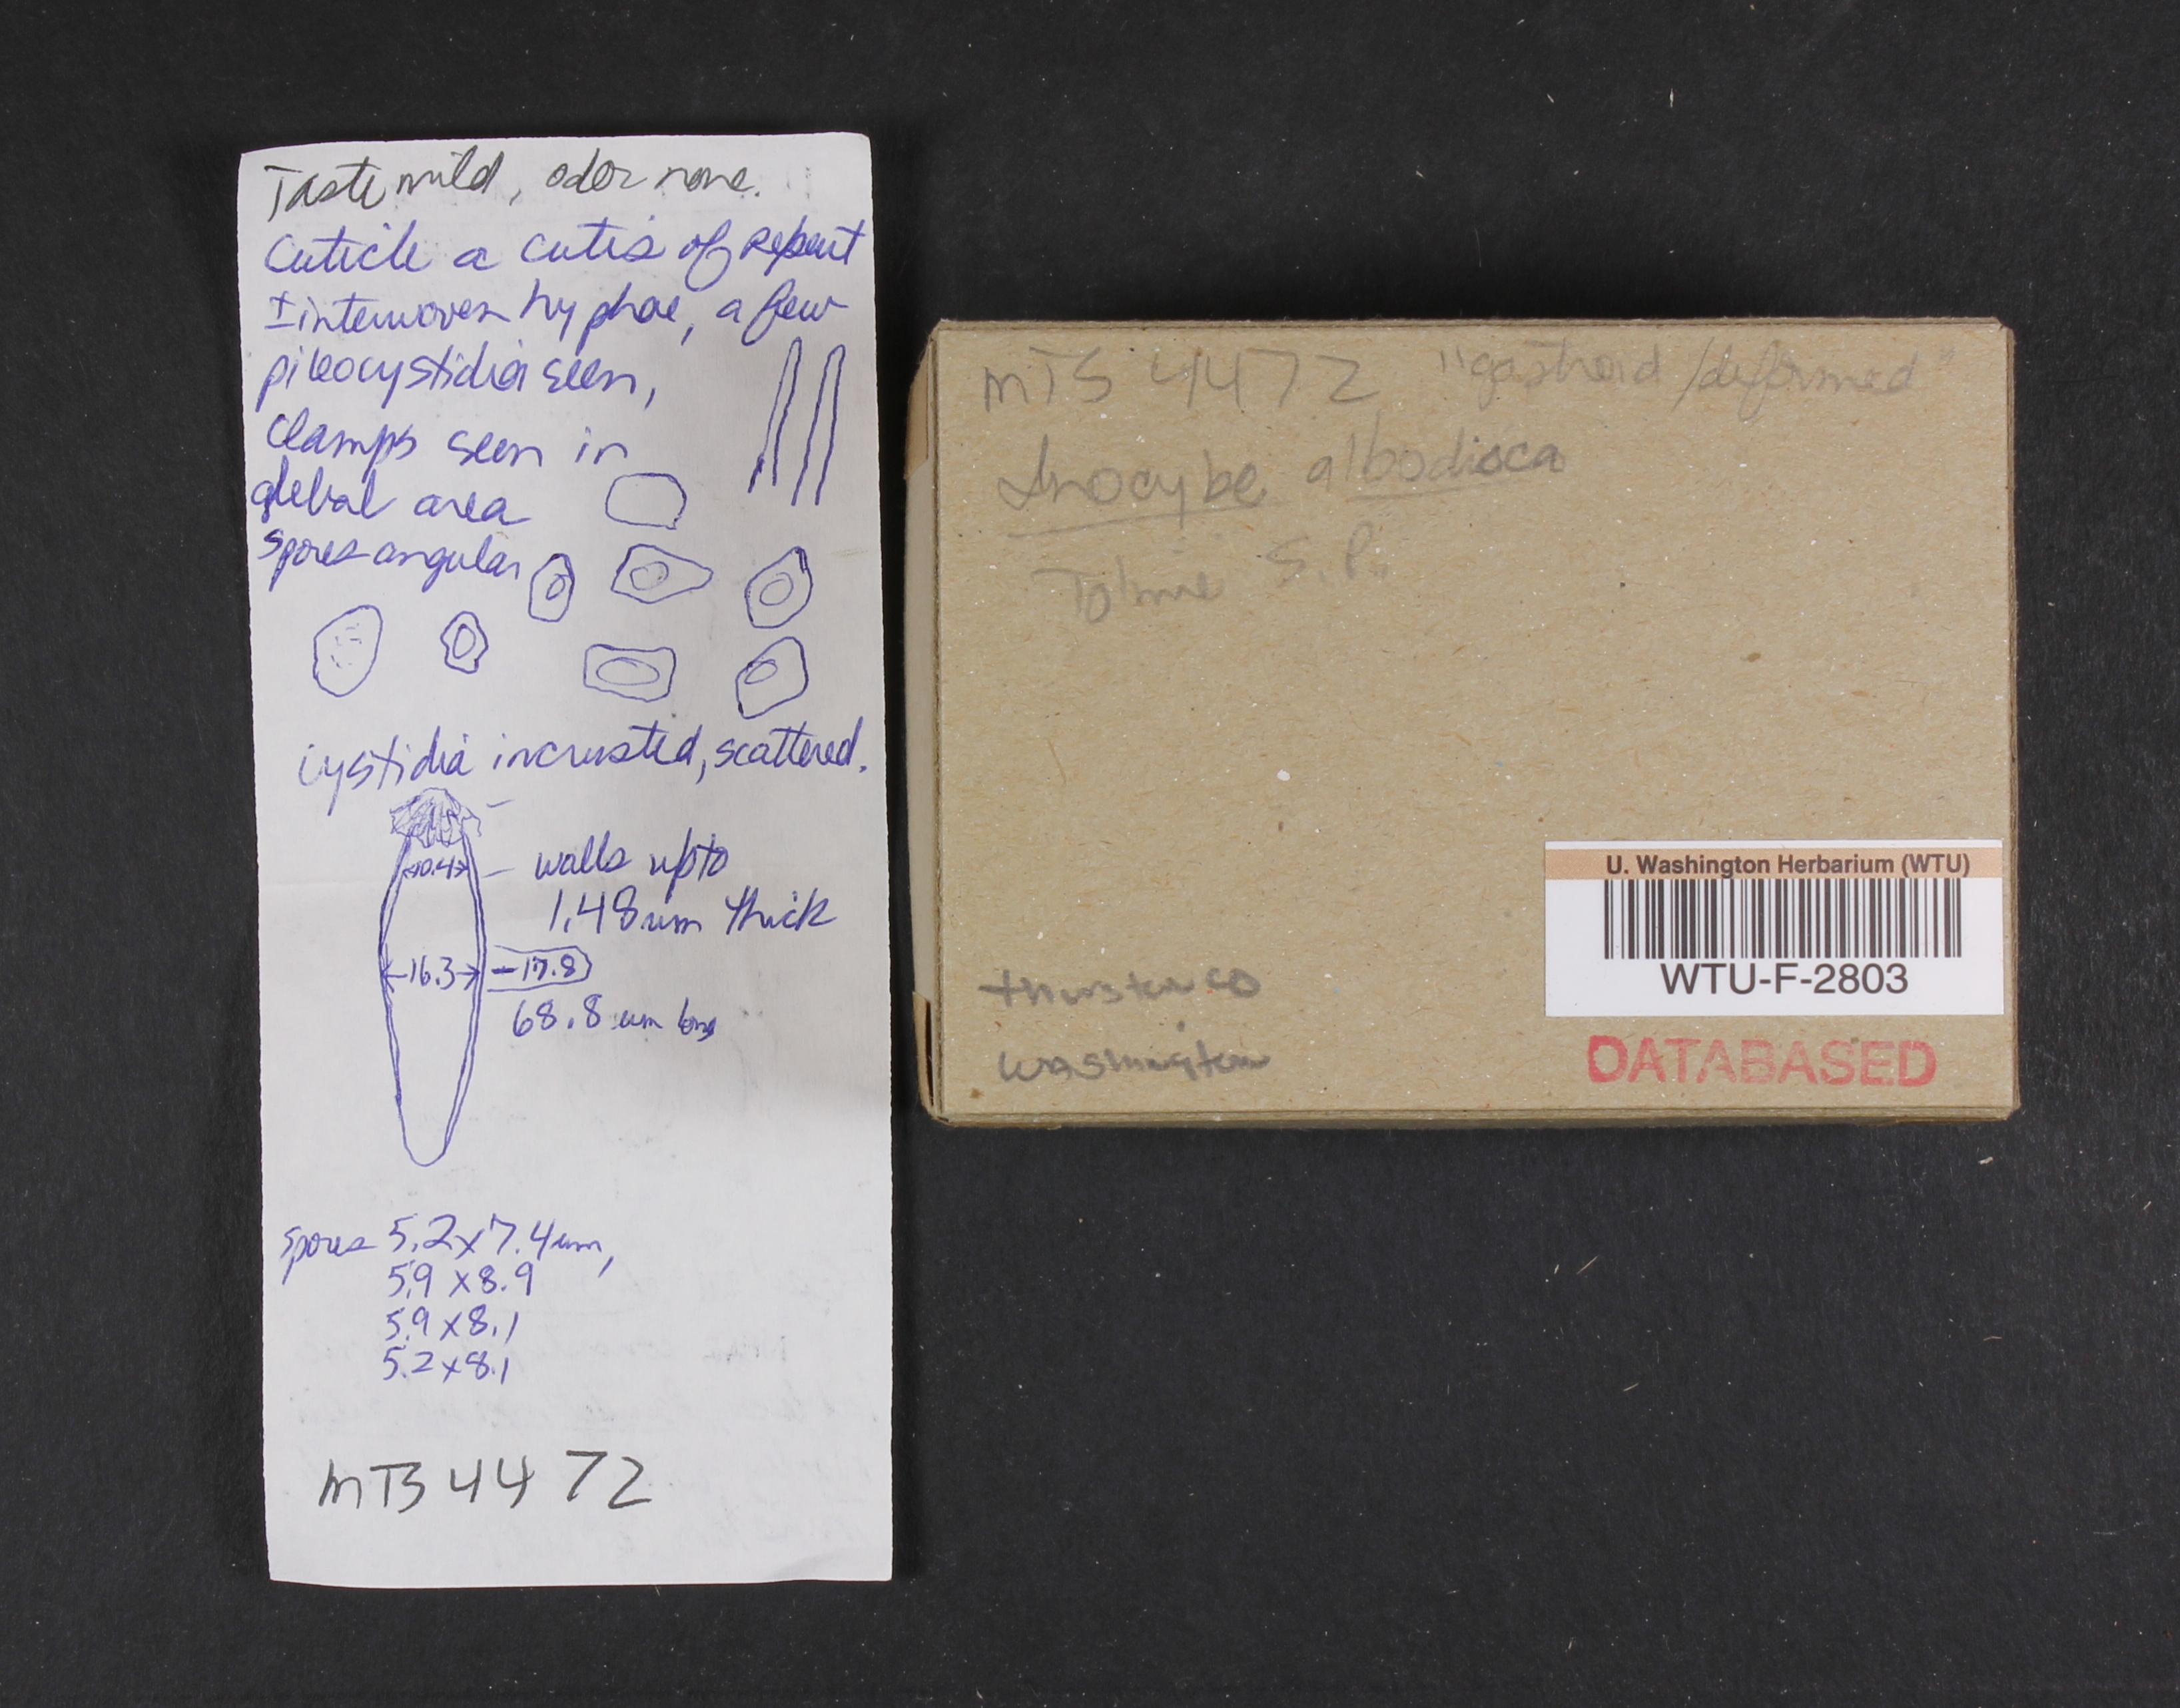 Taste mild, odor none.
Cuticle a cutis of repent
± interwoven hyphae, a few
pileocystidia seen,
clamps seen in
glebal area
spores angular
cystidia incrusted, scattered.
10.4
walls up to
1.48 um thick
16.3 - 17.8
68.8 um long
spores 5.2 x 7.4 um,
5.9 x 8.9
5.9 x 8.1
5.2 x 8.1
MTS 4472
MTS 4472 "gastroid/deformed"
Inocybe albodisca
Tolmie S.P.
Thurston CO
Washington
U. Washington Herbarium (WTU)
WTU-F-2803
DATABASED